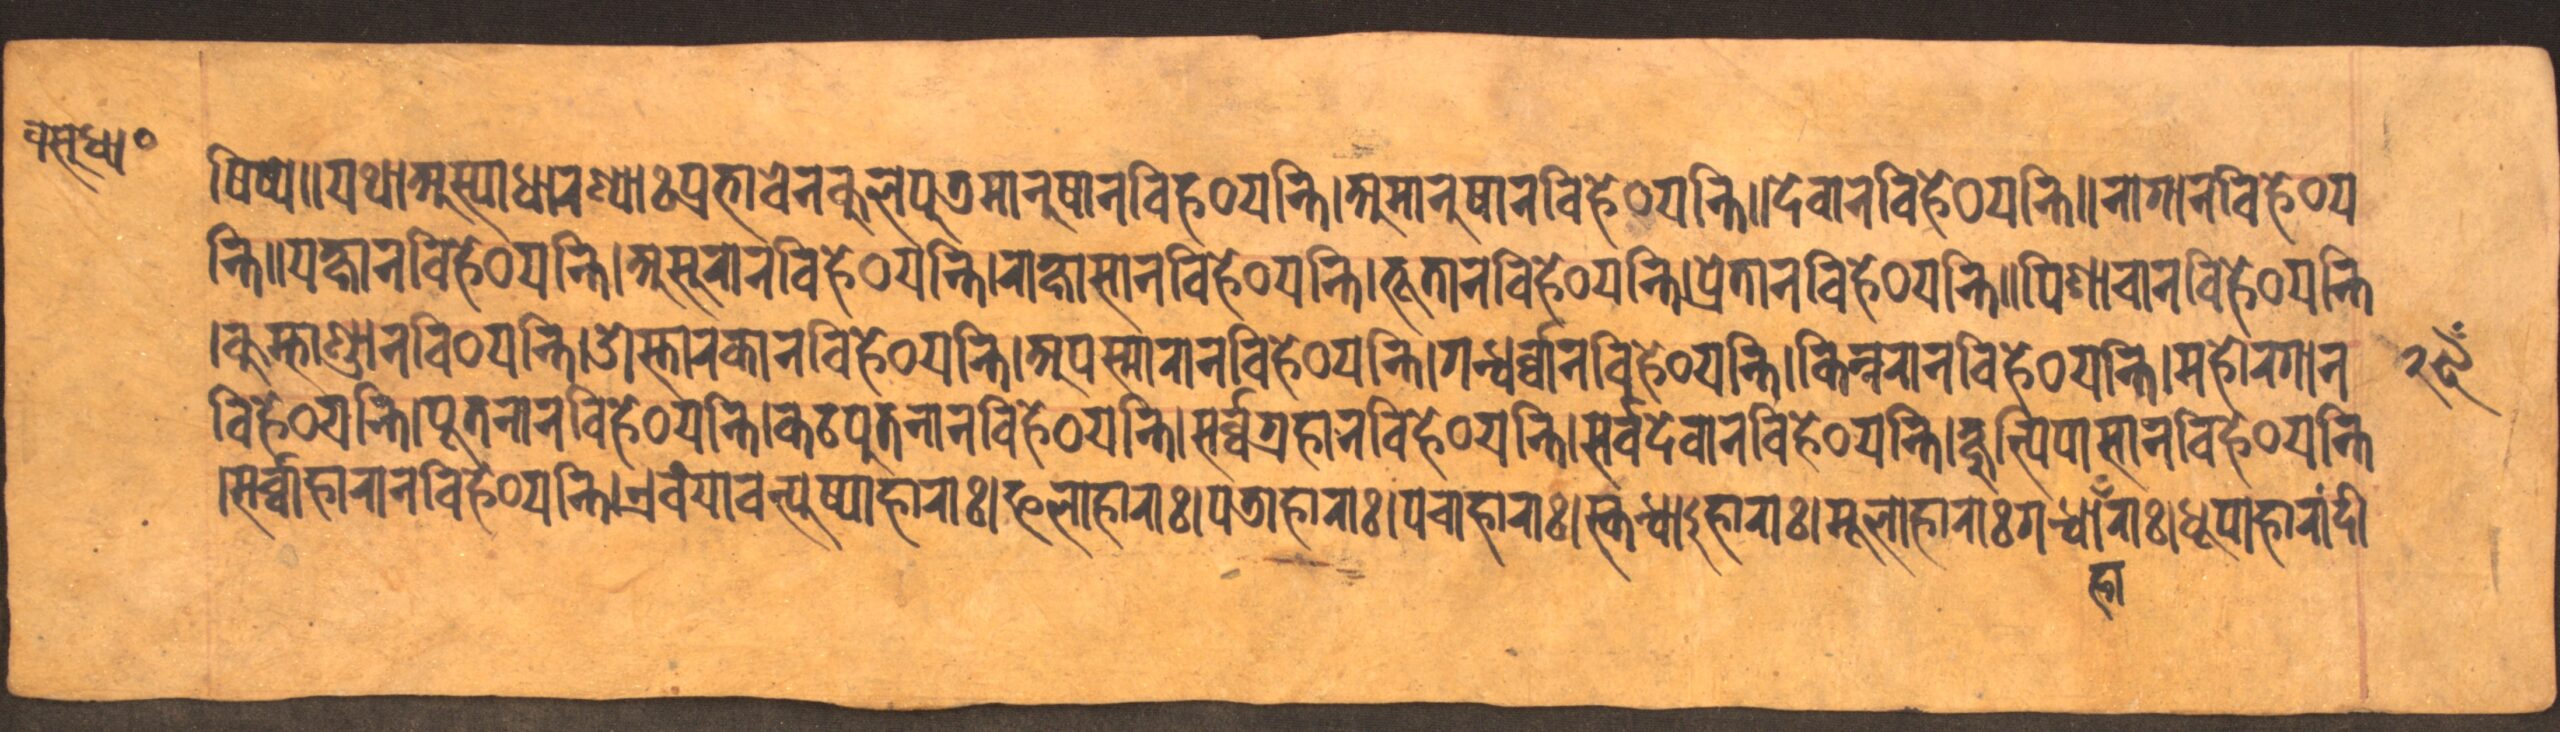 वसुधा०
षिष्ये॥यथाअस्याधारण्याःप्रभावेनकुलपुत्रमानुषानविहठयन्ति।अमानुषानविहेठयन्ति॥देवानविहेठयन्ति॥नागानविहेठय
न्ति॥यक्षानविहेठयन्ति।असुरानविहेठयन्ति।राक्षासानविहेठयन्ति।भूतानविहेठयन्ति।प्रेतानविहेठयन्ति॥पिशाचानविहेठयन्ति
।कुम्भाण्डानविठयन्ति।ओस्तारकानविहेठयन्ति।अपस्मारानविहेठयन्ति।गन्धर्व्वानविहेठयन्ति।किन्नरानविहेठयन्ति।महोरगान
२९
विहेठयन्ति।पूतनानविहेठयन्ति।कटपुतनानविहेठयन्ति।सर्व्वग्रहानविहेठयन्ति।सर्वदेवानविहेठयन्ति।क्षुत्पिपासानविहेठयन्ति
।सर्व्वाहारानविहेठयन्ति।एवंयावत्पुष्पाहाराः।फलाहाराः।पत्राहाराः।पचाहाराः।स्कन्धाऽहाराः।मूलाहाराःगन्धाँराः।धूपाहारांदी
हा